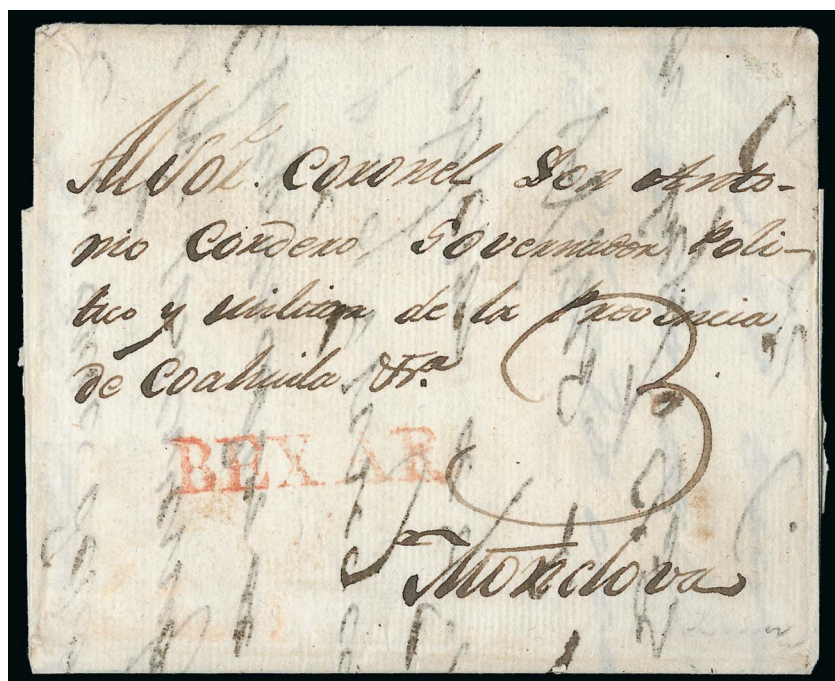 Al Sor. Coronel Don Anto-
nio Cordero, Governador Poli-
tico y militar de la Provincia
de Coahuila &ra.
3
BEXAR
Monclova